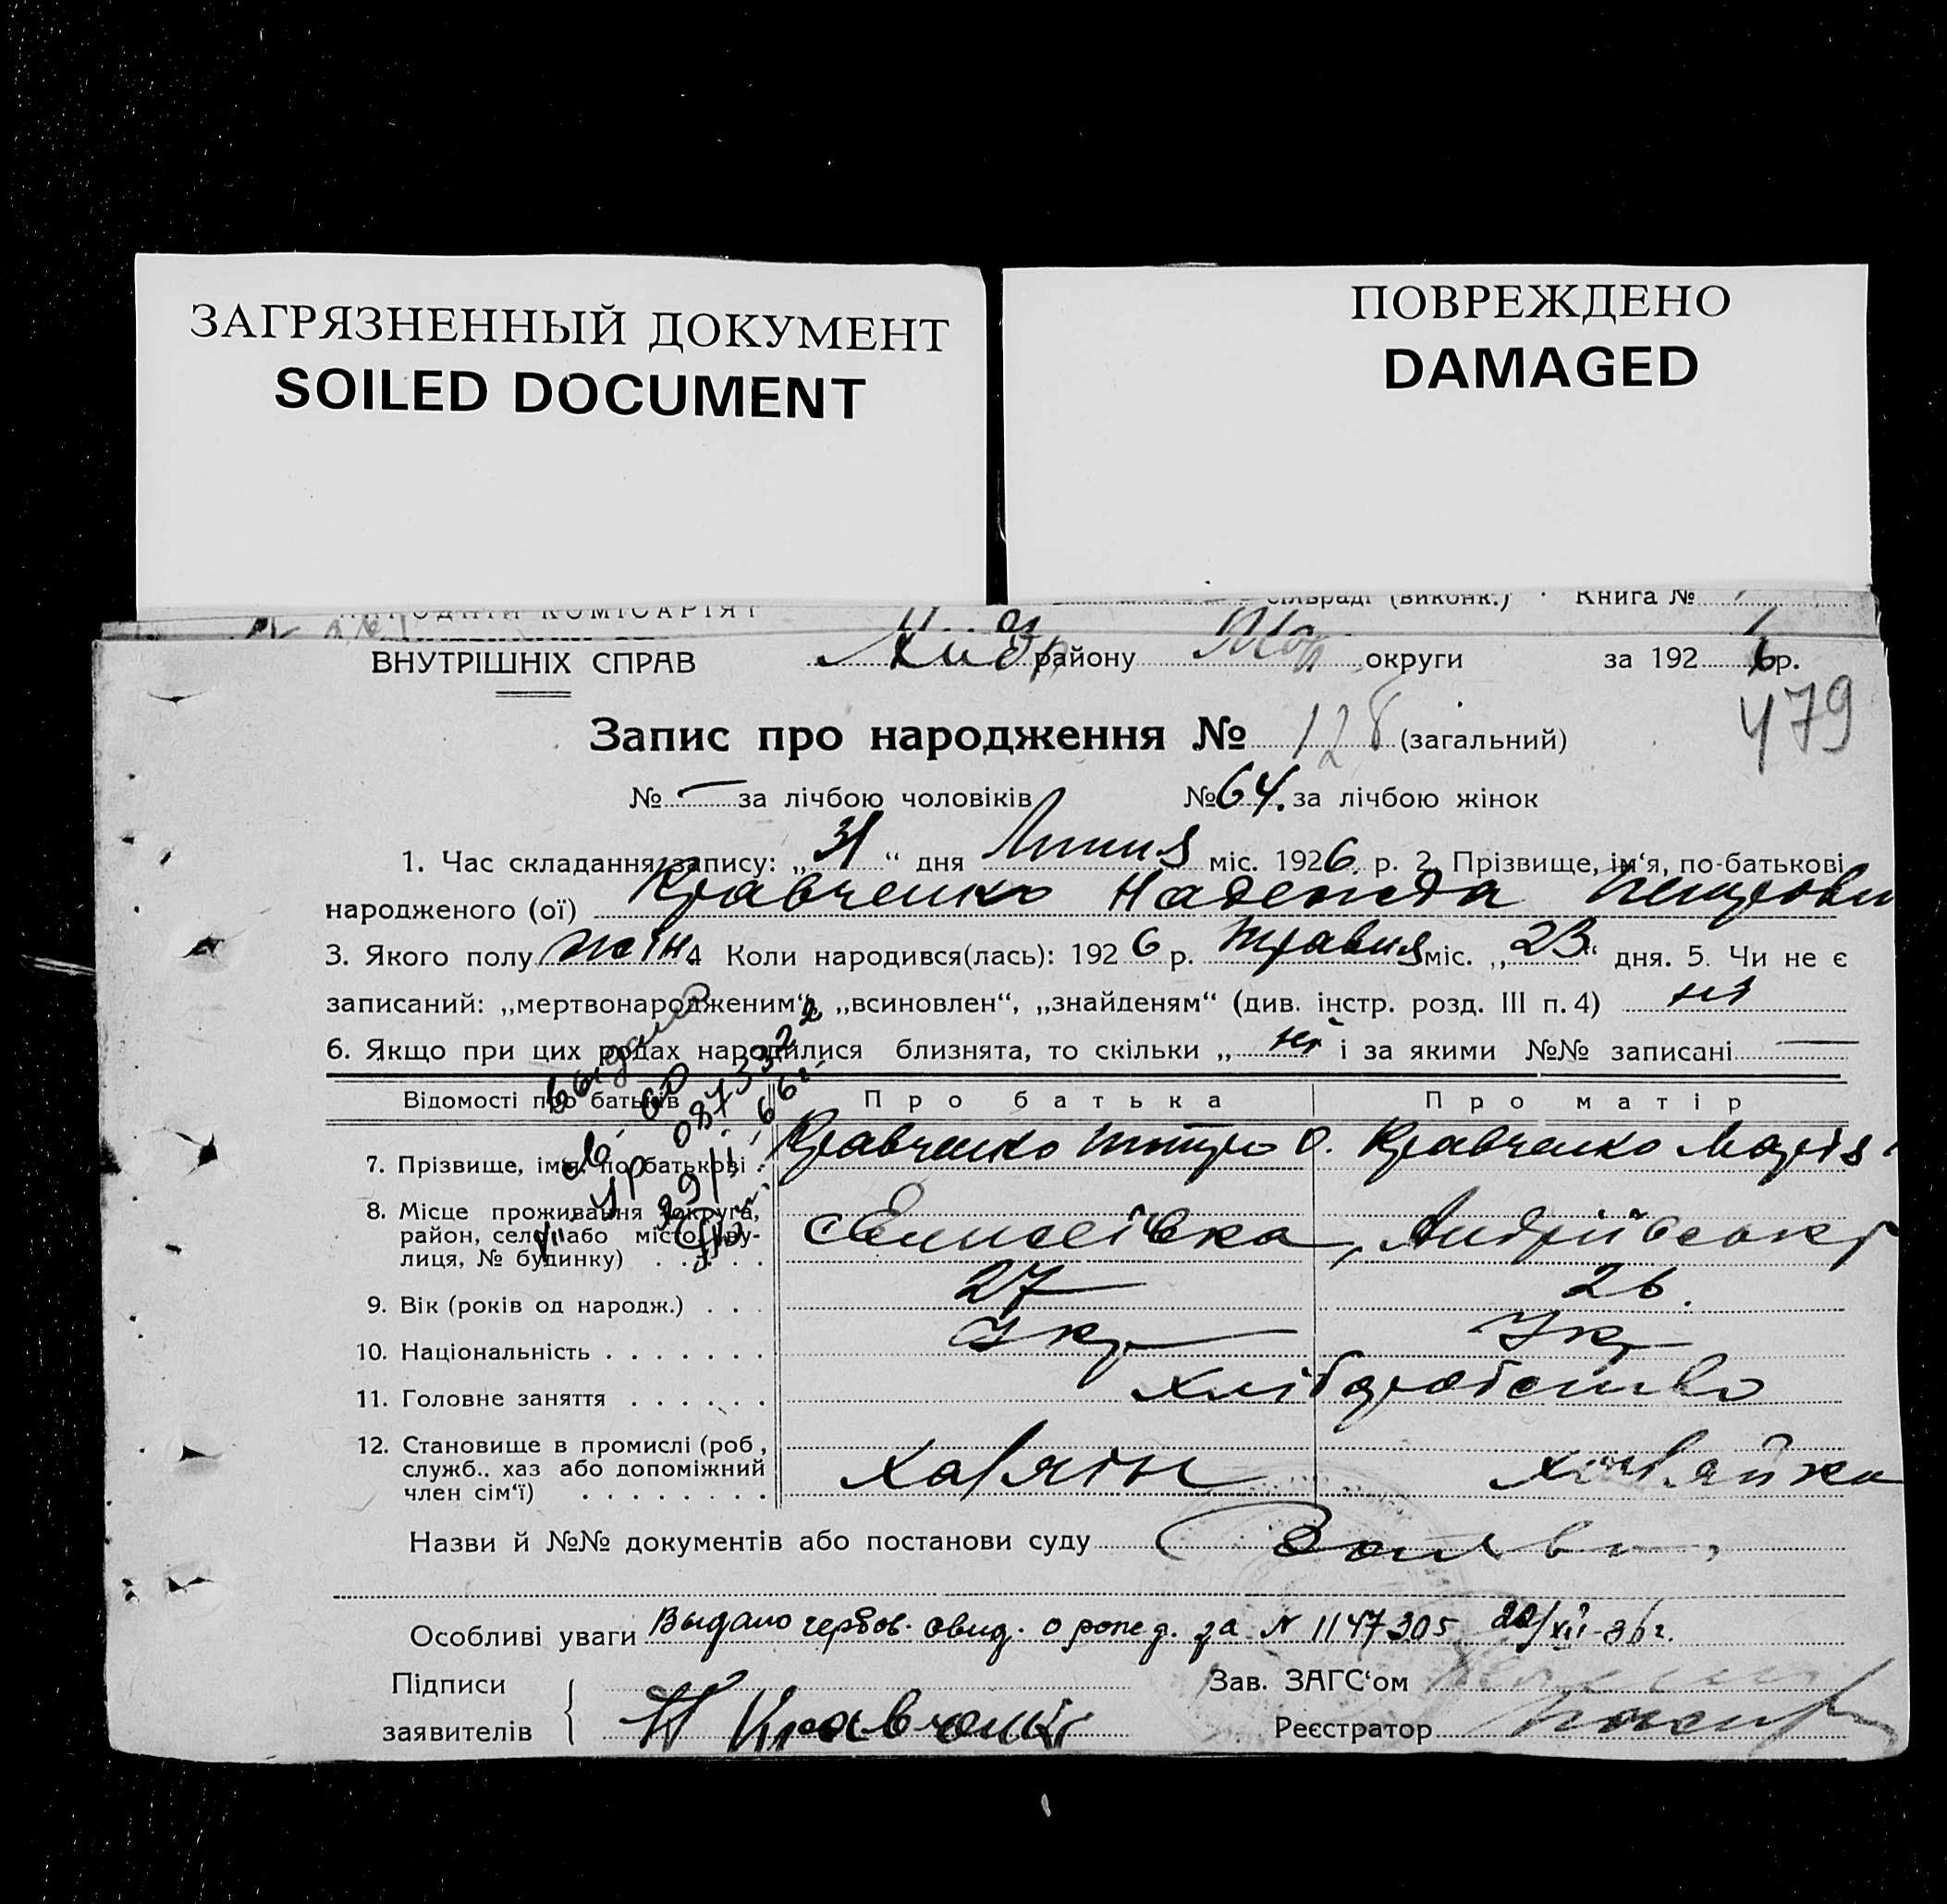 ЗАГРЯЗНЕННЫЙ ДОКУМЕНТ
SOILED DOCUMENT
ПОВРЕЖДЕНО
DAMAGED
НАРОДНІЙ КОМІСАРІЯТ
сільраді (виконк.) Книга №
ВНУТРІШНІХ СПРАВ району округи за 1926 р.
479
Запис про народження № 128 (загальний)
№ — за лічбою чоловіків № 64. за лічбою жінок
1. Час складання запису: „31“ дня Липня міс. 1926 р. 2. Прізвище, ім‘я, по-батькові
народженого (ої) Кравченко Надежда Петровн
3. Якого полу жін. 4 Коли народився(лась): 1926 р. травня міс. „23“ дня. 5. Чи не є
записаний: „мертвонародженим“, „всиновлен“, „знайденям“ (див. інстр. розд. III п. 4) ні
6. Якщо при цих родах народилися близнята, то скільки „ ні і за якими №№ записані —
Відомості про батьків Про батька Про матір
7. Прізвище, ім‘я, по батькові Кравченко Петро О. Кравченко Марія
8. Місце проживання (округа,
район, село або місто, ву-
лиця, № будинку) Єлисеївка, Андріївськ
9. Вік (років од народж.) 27 26.
10. Національність Укр Укр
11. Головне заняття хліборобство
12. Становище в промислі (роб,
служб.. хаз або допоміжний
член сім‘ї) Хазяїн хазяйка
выдано
087332
Назви й №№ документів або постанови суду Заява
Особливі уваги Выдано гербов. свид. о рожд. за N 1147305 20/XII-36 г.
Підписи Зав. ЗАГС‘ом
заявителів Кравченко Реєстратор